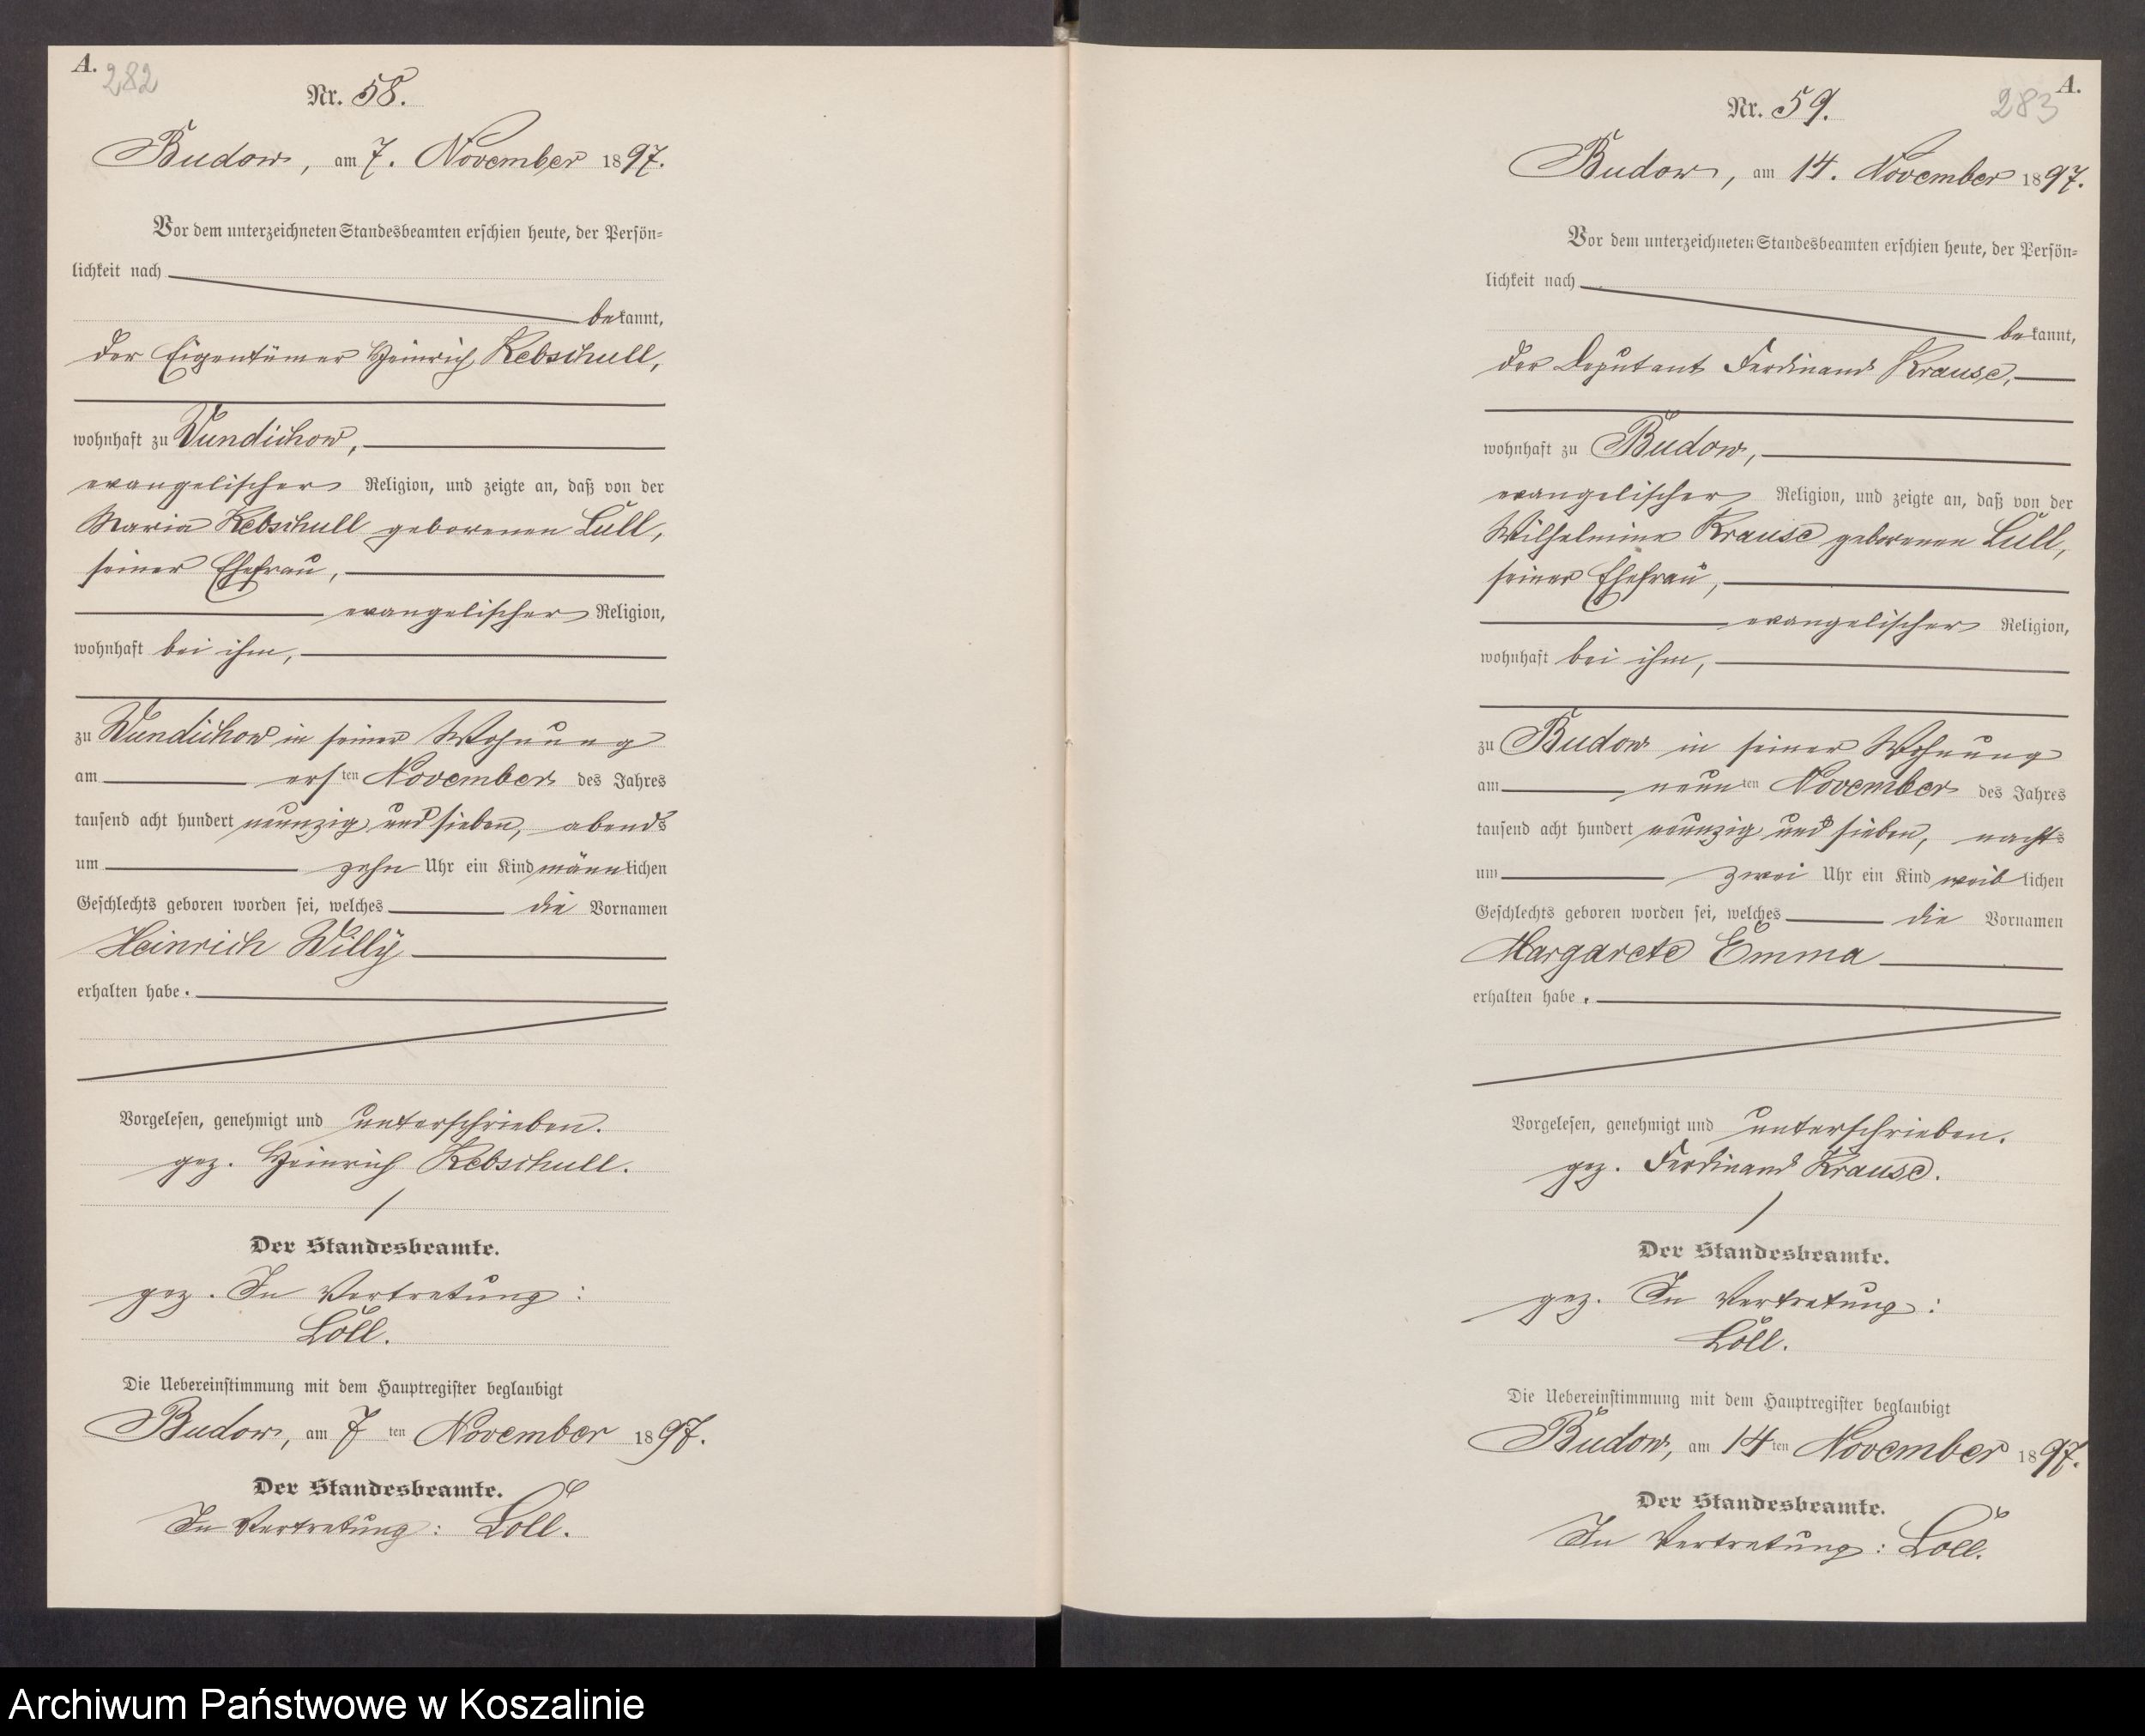 A.
282
Nr. 58.
Budow, am 7. November 1897.
Vor dem unterzeichneten Standesbeamten erschien heute, der Persön-
lichkeit nach
bekannt,
der Eigentümer Heinrich Kebschull,
wohnhaft zu Wundichow,
evangelischer Religion, und zeigte an, daß von der
Maria Kebschull geborenen Lull,
seiner Ehefrau,
evangelischer Religion,
wohnhaft bei ihm,
zu Wundichow in seiner Wohnung
am ersten November des Jahres
tausend acht hundert neunzig und sieben, abends
um zehn Uhr ein Kind männlichen
Geschlechts geboren worden sei, welches die Vornamen
Heinrich Willy
erhalten habe.
Vorgelesen, genehmigt und unterschrieben.
gez. Heinrich Kebschull.
Der Standesbeamte.
gez. In Vertretung:
Löll.
Die Uebereinstimmung mit dem Hauptregister beglaubigt
Budow, am 7ten November 1897.
Der Standesbeamte.
In Vertretung: Löll.
A.
283
Nr. 59.
Budow, am 14. November 1897.
Vor dem unterzeichneten Standesbeamten erschien heute, der Persön-
lichkeit nach
bekannt,
der Deputant Ferdinand Krause,
wohnhaft zu Budow,
evangelischer Religion, und zeigte an, daß von der
Wilhelmine Krause geborenen Lull,
seiner Ehefrau,
evangelischer Religion,
wohnhaft bei ihm,
zu Budow in seiner Wohnung
am neunten November des Jahres
tausend acht hundert neunzig und sieben, nachts
um zwei Uhr ein Kind weiblichen
Geschlechts geboren worden sei, welches die Vornamen
Margarete Emma
erhalten habe.
Vorgelesen, genehmigt und unterschrieben.
gez. Ferdinand Krause.
Der Standesbeamte.
gez. In Vertretung:
Löll.
Die Uebereinstimmung mit dem Hauptregister beglaubigt
Budow, am 14ten November 1897.
Der Standesbeamte.
In Vertretung: Löll.
Archiwum Państwowe w Koszalinie